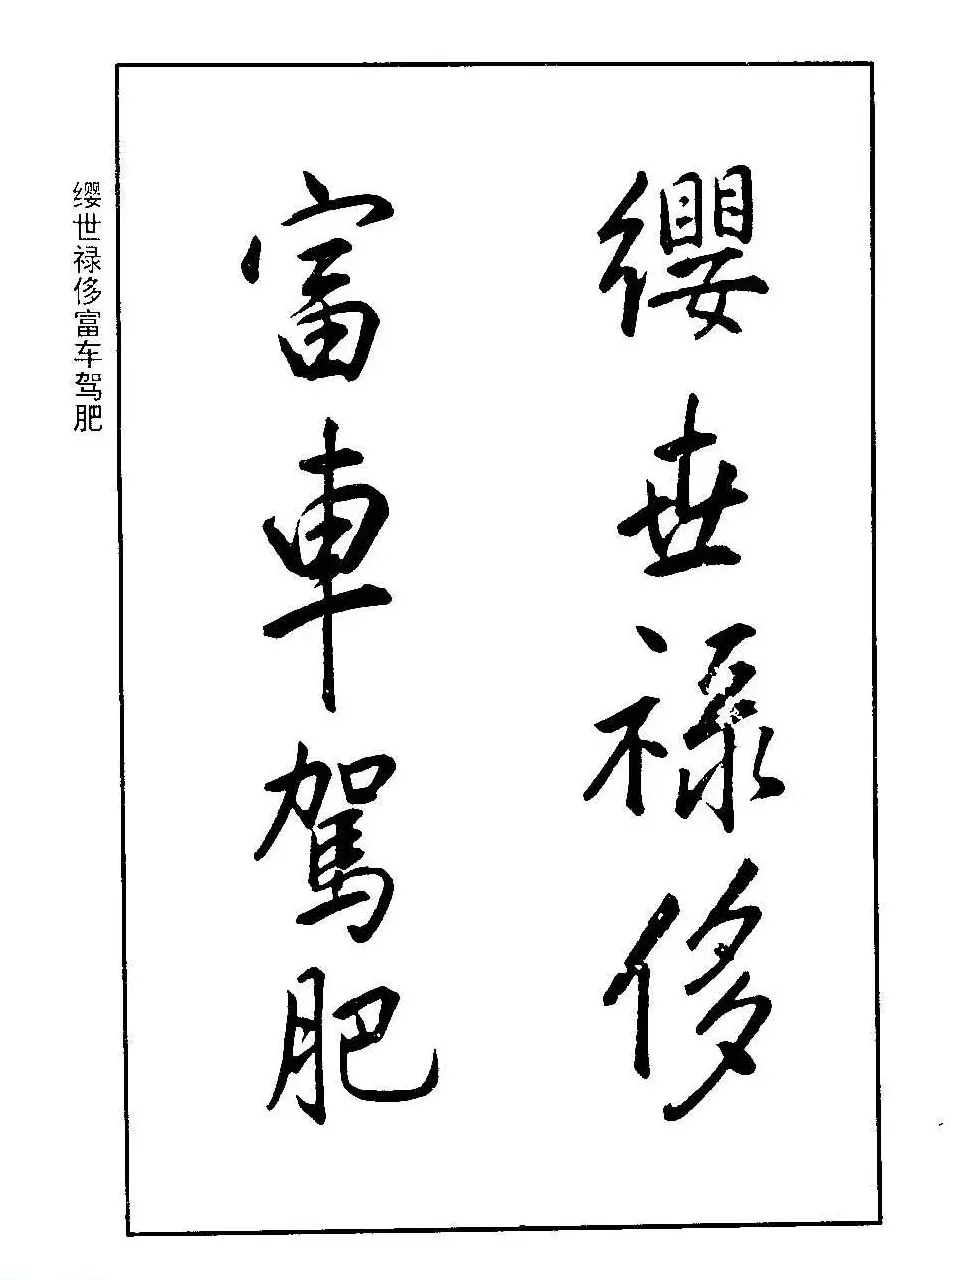 纓世祿侈
富車駕肥
缨世禄侈富车驾肥